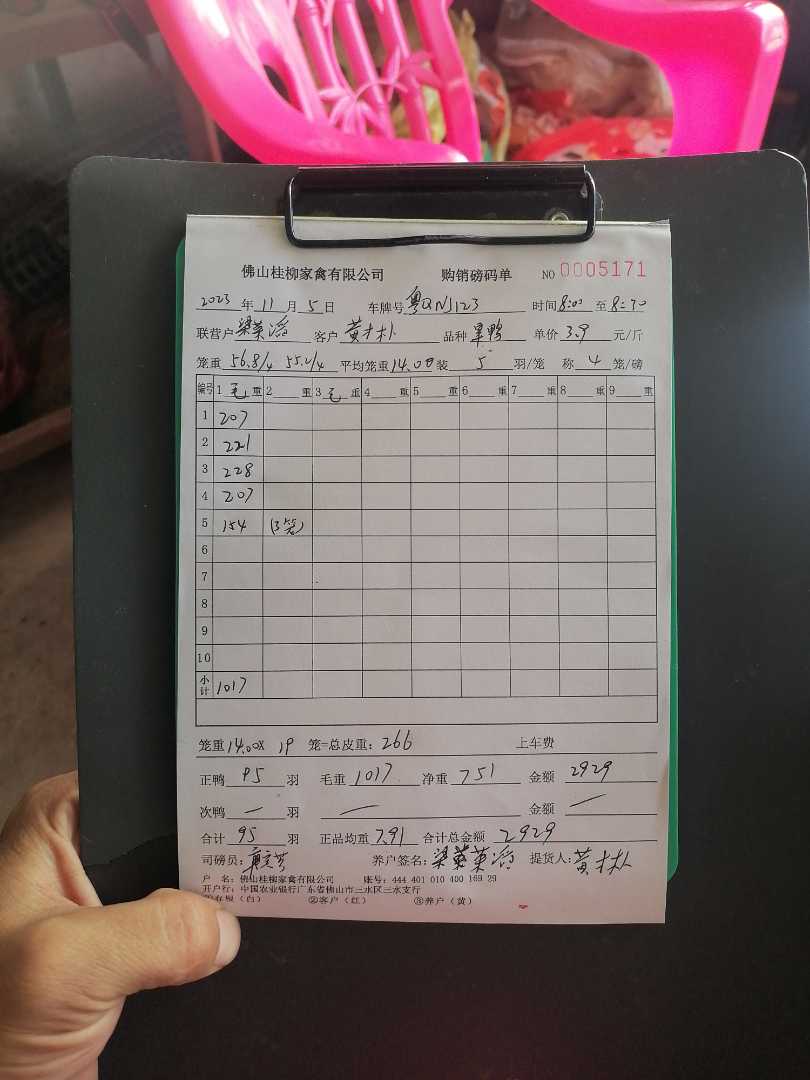 佛山桂柳家禽有限公司 购销磅码单 NO 0005171
2023 年 11 月 5 日 车牌号 粤QNJ123 时间 8:00 至 8:30
联营户 客户 黄才朴 品种 旱鸭 单价 3.9 元/斤
笼重 56.8/4 55.2/4 平均笼重 14.00 装 5 羽/笼 称 4 笼/磅
编号 1 毛 重 2 重 3 毛 重 4 重 5 重 6 重 7 重 8 重 9 重
1 207
2 221
3 228
4 207
5 154 (3笼)
6
7
8
9
10
小计 1017
笼重 14.00 X 19 笼=总皮重: 266 上车费
正鸭 95 羽 毛重 1017 净重 751 金额 2929
次鸭 — 羽 — 金额 —
合计 95 羽 正品均重 7.91 合计总金额 2929
司磅员: 养户签名: 提货人: 黄才朴
户 名: 佛山桂柳家禽有限公司 账号: 444 401 010 400 169 29
开户行: 中国农业银行广东省佛山市三水区三水支行
①存根（白） ②客户（红） ③养户（黄）